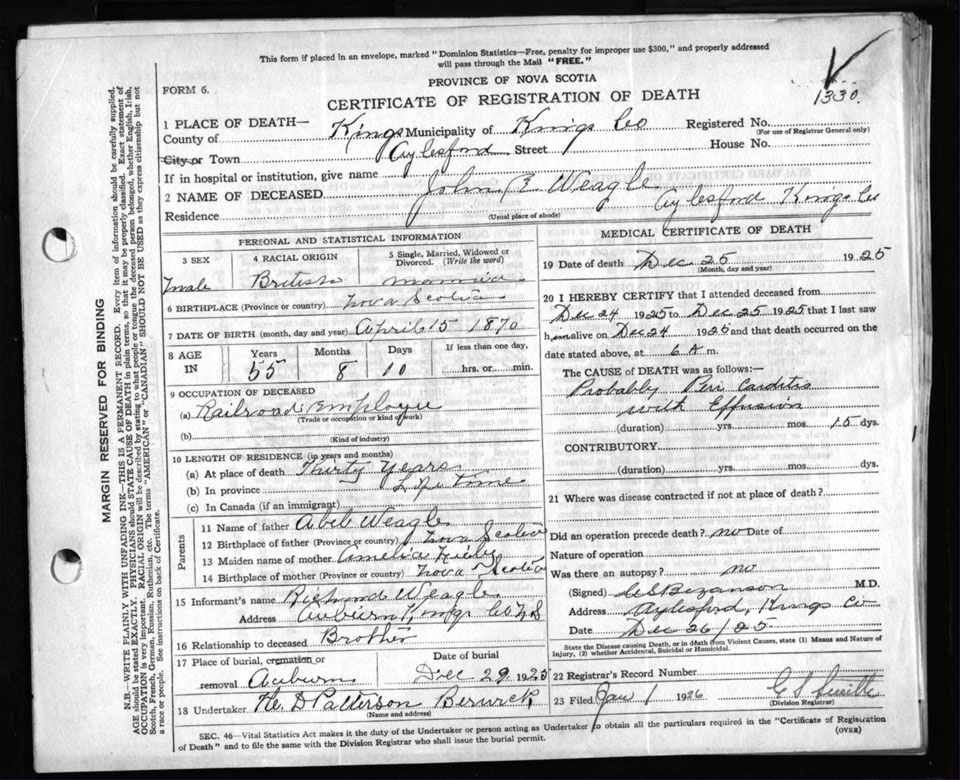 This form if placed in an envelope, marked "Dominion Statistics—Free, penalty for improper use $300," and properly addressed
will pass through the Mail "FREE."
PROVINCE OF NOVA SCOTIA
FORM 6.
CERTIFICATE OF REGISTRATION OF DEATH
1330.
1 PLACE OF DEATH—
County of Kings Municipality of Kings Co Registered No.
(For use of Registrar General only)
City or Town Aylesford Street House No.
If in hospital or institution, give name
2 NAME OF DECEASED John E Weagle
Residence Aylesford Kings Co
(Usual place of abode)
PERSONAL AND STATISTICAL INFORMATION
3 SEX 4 RACIAL ORIGIN 5 Single, Married, Widowed or Divorced. (Write the word)
male British married
6 BIRTHPLACE (Province or country) Nova Scotia
7 DATE OF BIRTH (month, day and year) April 15 1870
8 AGE IN Years Months Days If less than one day,
55 8 10 hrs. or min.
9 OCCUPATION OF DECEASED
(a) Railroad Employee
(Trade or occupation or kind of work)
(b)
(Kind of industry)
10 LENGTH OF RESIDENCE (in years and months)
(a) At place of death Thirty Years
(b) In province Life time
(c) In Canada (if an immigrant)
Parents
11 Name of father Weagle
12 Birthplace of father (Province or country) Nova Scotia
13 Maiden name of mother Amelia
14 Birthplace of mother (Province or country) Nova Scotia
15 Informant's name Richmond Weagle
Address Auburn, Kings Co N S
16 Relationship to deceased Brother
17 Place of burial, cremation or removal Auburn Date of burial Dec 29 1925
18 Undertaker Patterson Berwick
(Name and address)
MEDICAL CERTIFICATE OF DEATH
19 Date of death Dec 25 1925
(Month, day and year)
20 I HEREBY CERTIFY that I attended deceased from
Dec 24 1925 to Dec 25 1925 that I last saw
him alive on Dec 24 1925 and that death occurred on the
date stated above, at 6 A m.
The CAUSE of DEATH was as follows:—
Probably Peri Carditis
with Effusion
(duration) yrs. mos. 15 dys.
CONTRIBUTORY
(duration) yrs. mos. dys.
21 Where was disease contracted if not at place of death?
Did an operation precede death? no Date of
Nature of operation
Was there an autopsy? no
(Signed) Bezanson M.D.
Address Aylesford, Kings Co
Date Dec 26/25
State the Disease causing Death, or in death from Violent Causes, state (1) Means and Nature of
Injury, (2) whether Accidental, Suicidal or Homicidal.
22 Registrar's Record Number
23 Filed Jan 1 1926
(Division Registrar)
SEC. 46—Vital Statistics Act makes it the duty of the Undertaker or person acting as Undertaker to obtain all the particulars required in the "Certificate of Registration
of Death" and to file the same with the Division Registrar who shall issue the burial permit.
(OVER)
MARGIN RESERVED FOR BINDING
N.B.—WRITE PLAINLY WITH UNFADING INK—THIS IS A PERMANENT RECORD. Every item of information should be carefully supplied.
AGE should be stated EXACTLY. PHYSICIANS should STATE CAUSE OF DEATH in plain terms, so that it may be properly classified. Exact statement of
OCCUPATION is very important. RACIAL ORIGIN will be described by stating to what people or tongue the deceased person belonged, whether English, Irish,
Scotch, French, German, Russian, Ruthenian, etc. The terms "AMERICAN" or "CANADIAN" SHOULD NOT BE USED as they express citizenship but not
a race or people. See instructions on back of Certificate.